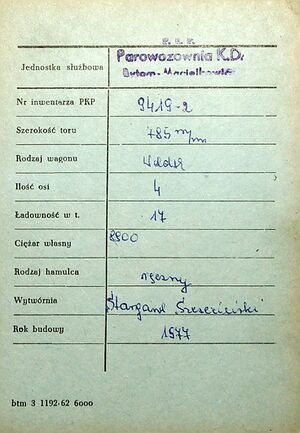 P. K. P.
Parowozownia K.D.
Jednostka służbowa
Bytom-Maciejkowice
Nr inwentarza PKP 9419-2
Szerokość toru 785 m/m
Rodzaj wagonu Wddxh
Ilość osi 4
Ładowność w t. 17
Ciężar własny 8900
Rodzaj hamulca ręczny
Wytwórnia Stargard Szczeciński
Rok budowy 1977
btm 3 1192-62 6000